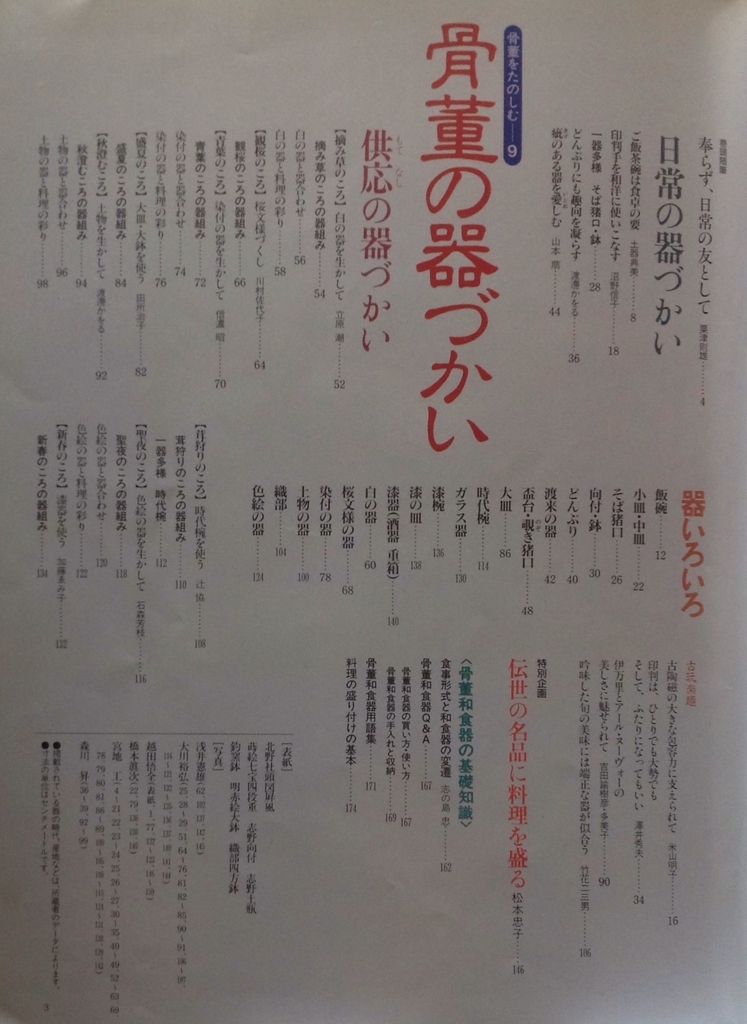 骨董をたのしむ―9
骨董の器づかい
巻頭随筆
奉らず、日常の友として 粟津則雄………4
日常の器づかい
ご飯茶碗は食卓の要 土器典美………8
印判手を和洋に使いこなす 沼野信子………18
一器多様 そば猪口・鉢………28
どんぶりにも趣向を凝らす 渡邊かをる………36
疵のある器を愛しむ 山本………44
供応の器づかい
もてなし
【摘み草のころ】白の器を生かして 立原 潮………52
摘み草のころの器組み………54
白の器と器合わせ………56
白の器と料理の彩り………58
【観桜のころ】桜文様づくし 川村佐代子………64
観桜のころの器組み………66
【青葉のころ】染付の器を生かして 信濃 昭………70
青葉のころの器組み………72
染付の器と器合わせ………74
染付の器と料理の彩り………76
【盛夏のころ】大皿・大鉢を使う 田所治子………82
盛夏のころの器組み………84
【秋澄むころ】土物を生かして 渡邊かをる………92
秋澄むころの器組み………94
土物の器と器合わせ………96
土物の器と料理の彩り………98
【茸狩りのころ】時代椀を使う 辻 協………108
茸狩りのころの器組み………110
一器多様 時代椀………112
【聖夜のころ】色絵の器を生かして 石森芳枝………116
聖夜のころの器組み………118
色絵の器と器合わせ………120
色絵の器と料理の彩り………122
【新春のころ】漆器を使う 加藤ゑみ子………132
新春のころの器組み………134
器いろいろ
飯碗………12
小皿・中皿………22
そば猪口………26
向付・鉢………30
どんぶり………40
渡来の器………42
盃台・覗き猪口………48
大皿………86
時代椀………114
ガラス器………130
漆椀………136
漆の皿………138
漆器(酒器・重箱)………140
白の器………60
桜文様の器………68
染付の器………78
土物の器………100
織部………104
色絵の器………124
古陶磁の大きな包容力に支えられて 米山明子………16
印判は、ひとりでも大勢でも
そして、ふたりになってもいい 澤井秀夫………34
伊万里とアール・ヌーヴォーの
美しさに魅せられて 吉田諭樹彦・多美子………90
吟味した旬の美味には端正な器が似合う 竹花二三男………106
特別企画
伝世の名品に料理を盛る 松本忠子………146
〈骨董和食器の基礎知識〉
食事形式と和食器の変遷 志の島 忠………162
骨董和食器Q&A………167
骨董和食器の買い方・使い方………167
骨董和食器の手入れと収納………169
骨董和食器用語集………171
料理の盛り付けの基本………174
[表紙]
北野社頭図屏風
蒔絵七宝四段重 志野向付 志野土瓶
釣窯鉢 明赤絵大鉢 織部四方鉢
[写真]
●掲載されている器の時代、産地などは、所蔵者のデータによります。
●寸法の単位はセンチメートルです。
3